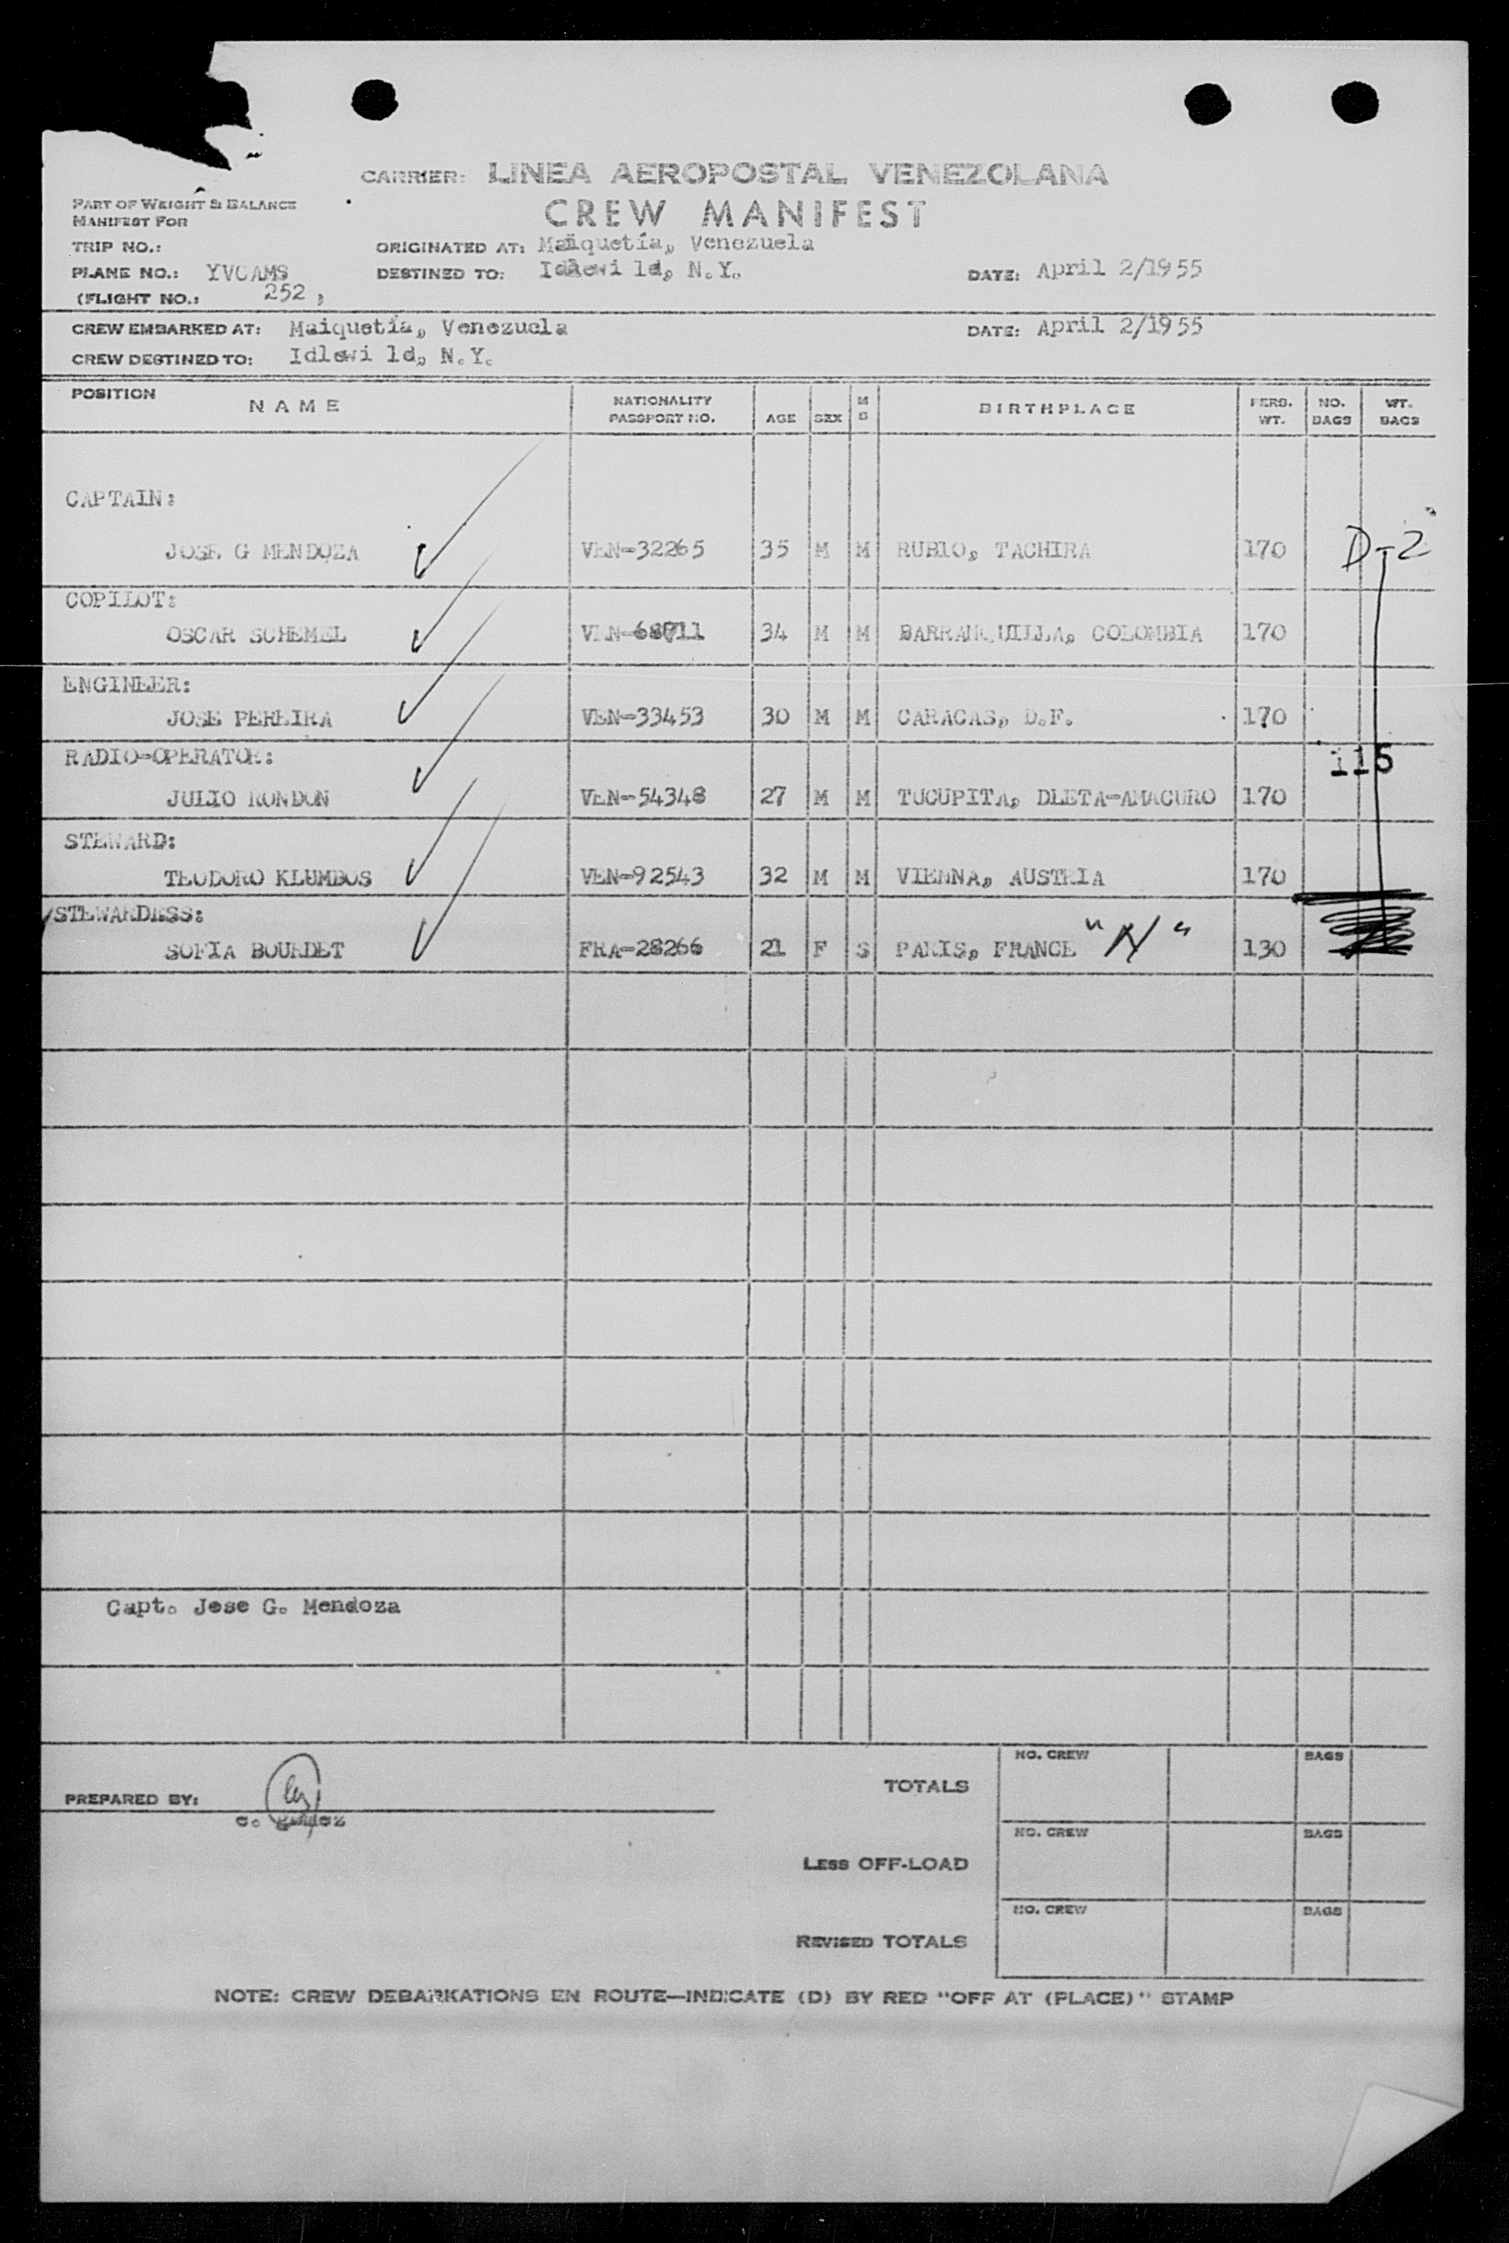 CARRIER: LINEA AEROPOSTAL VENEZOLANA
PART OF WEIGHT & BALANCE
MANIFEST FOR
CREW MANIFEST
TRIP NO.:
ORIGINATED AT: Maiquetía, Venezuela
PLANE NO.: YVCAMS
DESTINED TO: Idlewi ld, N.Y.
DATE: April 2/1955
(FLIGHT NO.: 252,
CREW EMBARKED AT: Maiquetía, Venezuela DATE: April 2/1955
CREW DESTINED TO: Idlewi ld, N.Y.
POSITION NAME NATIONALITY PASSPORT NO. AGE SEX M S BIRTHPLACE PERS. WT. NO. BAGS WT. BAGS
CAPTAIN:
JOSE G MENDOZA VEN-32265 35 M M RUBIO, TACHIRA 170 D-2
COPILOT:
OSCAR SCHEMEL 34 M M BARRANQUILLA, COLOMBIA 170
ENGINEER:
JOSE PEREIRA VEN-33453 30 M M CARACAS, D.F. 170
RADIO-OPERATOR: 115
JULIO RONDON VEN-54348 27 M M TUCUPITA, DLETA-AMACURO 170
STEWARD:
TEODORO KLUMBOS VEN-92543 32 M M VIENNA, AUSTRIA 170
STEWARDESS:
SOFIA BOURDET FRA-28266 21 F S PARIS, FRANCE "N" 130
Capt. Jose G. Mendoza
PREPARED BY:
TOTALS NO. CREW BAGS
LESS OFF-LOAD NO. CREW BAGS
REVISED TOTALS NO. CREW BAGS
NOTE: CREW DEBARKATIONS EN ROUTE—INDICATE (D) BY RED "OFF AT (PLACE)" STAMP